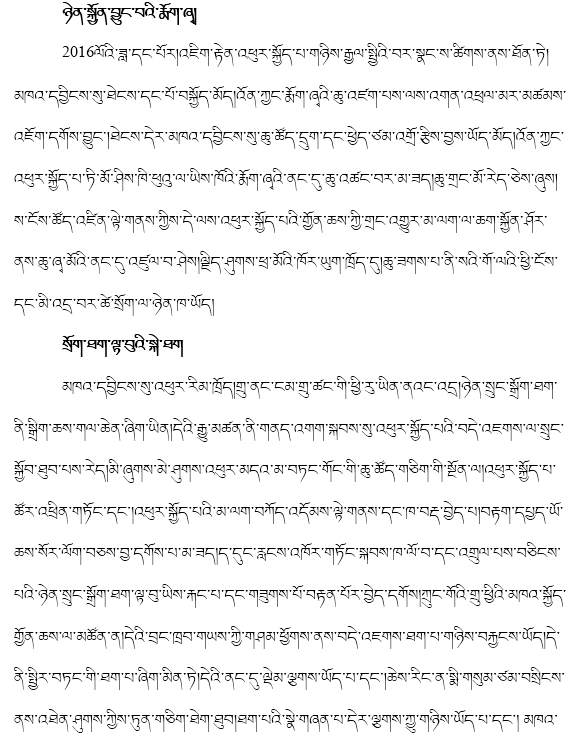 ཉེན་སྐྱོན་བྱུང་བའི་རྨོག་ཞྭ།
2016ལོའི་ཟླ་དང་པོར།འཇིག་རྟེན་འཕུར་སྐྱོད་པ་གཉིས་རྒྱལ་སྤྱིའི་བར་སྣང་ས་ཚིགས་ནས་ཐོན་ཏེ།
མཁའ་དབྱིངས་སུ་ཐེངས་དང་པོ་བསྐྱོད་མོད།འོན་ཀྱང་རྨོག་ཞྭའི་ཆུ་འཛག་པས་ལས་འགན་འཕྲལ་མར་མཚམས་
འཇོག་དགོས་བྱུང་།ཐེངས་དེར་མཁའ་དབྱིངས་སུ་ཆུ་ཚོད་དྲུག་དང་ཕྱེད་ཙམ་འགྲོ་རྩིས་བྱས་ཡོད་མོད།འོན་ཀྱང་
འཕུར་སྐྱོད་པ་ཏི་མོ་ཤིས་ཁི་ཕུའུ་ལ་ཡིས་ཁོའི་རྨོག་ཞྭའི་ནང་དུ་ཆུ་འཚང་བར་མ་ཟད།ཆུ་གྲང་མོ་རེད་ཅེས་ཞུས།
ས་ངོས་ཚོད་འཛིན་ལྟེ་གནས་ཀྱིས་དེ་ལས་འཕུར་སྐྱོད་པའི་གྱོན་ཆས་ཀྱི་གྲང་འགྱུར་མ་ལག་ལ་ཆག་སྐྱོན་ཤོར་
ནས་ཆུ་ཞྭ་མོའི་ནང་དུ་འཛུལ་བ་ཤེས།ལྗིད་ཤུགས་ཕྲ་མོའི་ཁོར་ཡུག་ཁྲོད་དུ།ཆུ་ཟགས་པ་ནི་སའི་གོ་ལའི་ཕྱི་ངོས་
དང་མི་འདྲ་བར་ཚེ་སྲོག་ལ་ཉེན་ཁ་ཡོད།
སྲོག་ཐག་ལྟ་བུའི་སྐེ་ཐག
མཁའ་དབྱིངས་སུ་འཕུར་རིམ་ཁྲོད།གྲུ་ནང་ངམ་གྲུ་ཚང་གི་ཕྱི་རུ་ཡིན་ནའང་འདྲ།ཉེན་སྲུང་སྒྲོག་ཐག་
ནི་སྒྲིག་ཆས་གལ་ཆེན་ཞིག་ཡིན།དེའི་རྒྱུ་མཚན་ནི་གནད་འགག་སྐབས་སུ་འཕུར་སྐྱོད་པའི་བདེ་འཇགས་ལ་སྲུང་
སྐྱོབ་ཐུབ་པས་རེད།མི་ཞུགས་མེ་ཤུགས་འཕུར་མདའ་མ་བཏང་གོང་གི་ཆུ་ཚོད་གཅིག་གི་སྔོན་ལ།འཕུར་སྐྱོད་པ་
ཚོར་འཕྲིན་གཏོང་དང་།འཕུར་སྐྱོད་པའི་མ་ལག་བཀོད་འདོམས་ལྟེ་གནས་དང་ཁ་བརྡ་བྱེད་པ།བརྟག་དཔྱད་ཡོ་
ཆས་སོར་ལོག་བཅས་བྱ་དགོས་པ་མ་ཟད།ད་དུང་རླངས་འཁོར་གཏོང་སྐབས་ཁ་ལོ་བ་དང་འགྲུལ་པས་བཅིངས་
པའི་ཉེན་སྲུང་སྒྲོག་ཐག་ལྟ་བུ་ཡིས་རྐང་པ་དང་གཟུགས་པོ་བརྟན་པོར་བྱེད་དགོས།ཀྲུང་གོའི་གྲུ་ཕྱིའི་མཁའ་སྐྱོད་
གྱོན་ཆས་ལ་མཚོན་ན།དེའི་བྲང་ཁྲབ་གཡས་ཀྱི་གཤམ་ཕྱོགས་ནས་བདེ་འཇགས་ཐག་པ་གཉིས་བརྐྱངས་ཡོད།དེ་
ནི་སྤྱིར་བཏང་གི་ཐག་པ་ཞིག་མིན་ཏེ།དེའི་ནང་དུ་ལྡེམ་ལྕགས་ཡོད་པ་དང་།ཆེས་རིང་ན་སྨི་གསུམ་ཙམ་བསྲིངས་
ནས་འཐེན་ཤུགས་ཀྱིས་ཏུན་གཅིག་ཐེག་ཐུབ།ཐག་པའི་སྣེ་གཞན་པ་དེར་ལྕགས་ཀྱུ་གཉིས་ཡོད་པ་དང་། མཁའ་